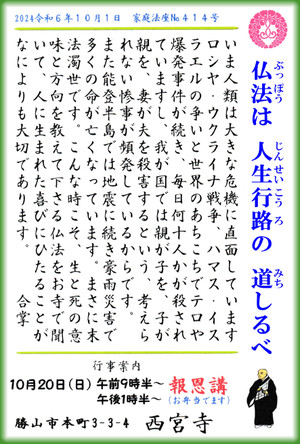 2024令和6年10月1日　家庭法座№414号
仏法は　人生行路の　道しるべ
ぶっぽう
じんせいこうろ
みち
いま人類は大きな危機に直面しています
ロシヤ・ウクライナ戦争、ハマス・イス
ラエルの争いと世界のあちこちでテロや
爆発事件が続き、毎日何十人かが殺され
ています。我が国では親が子を、子が
親を、妻が夫を殺害するという、考えら
れない惨事が頻発しているからです。
また能登半島では地震に続き豪雨災害で
多くの命が亡くなっています。まさに末
法濁世です。こんな時こそ、生と死の意
味と方向を教えて下さる仏法をお寺で聞
いて、人に生まれた喜びにひたることが
なによりも大切であります。　合掌
行事案内
10月20日(日)　午前9時半～　報恩講
午後1時半～　(お弁当でます)
勝山市本町3-3-4　西宮寺